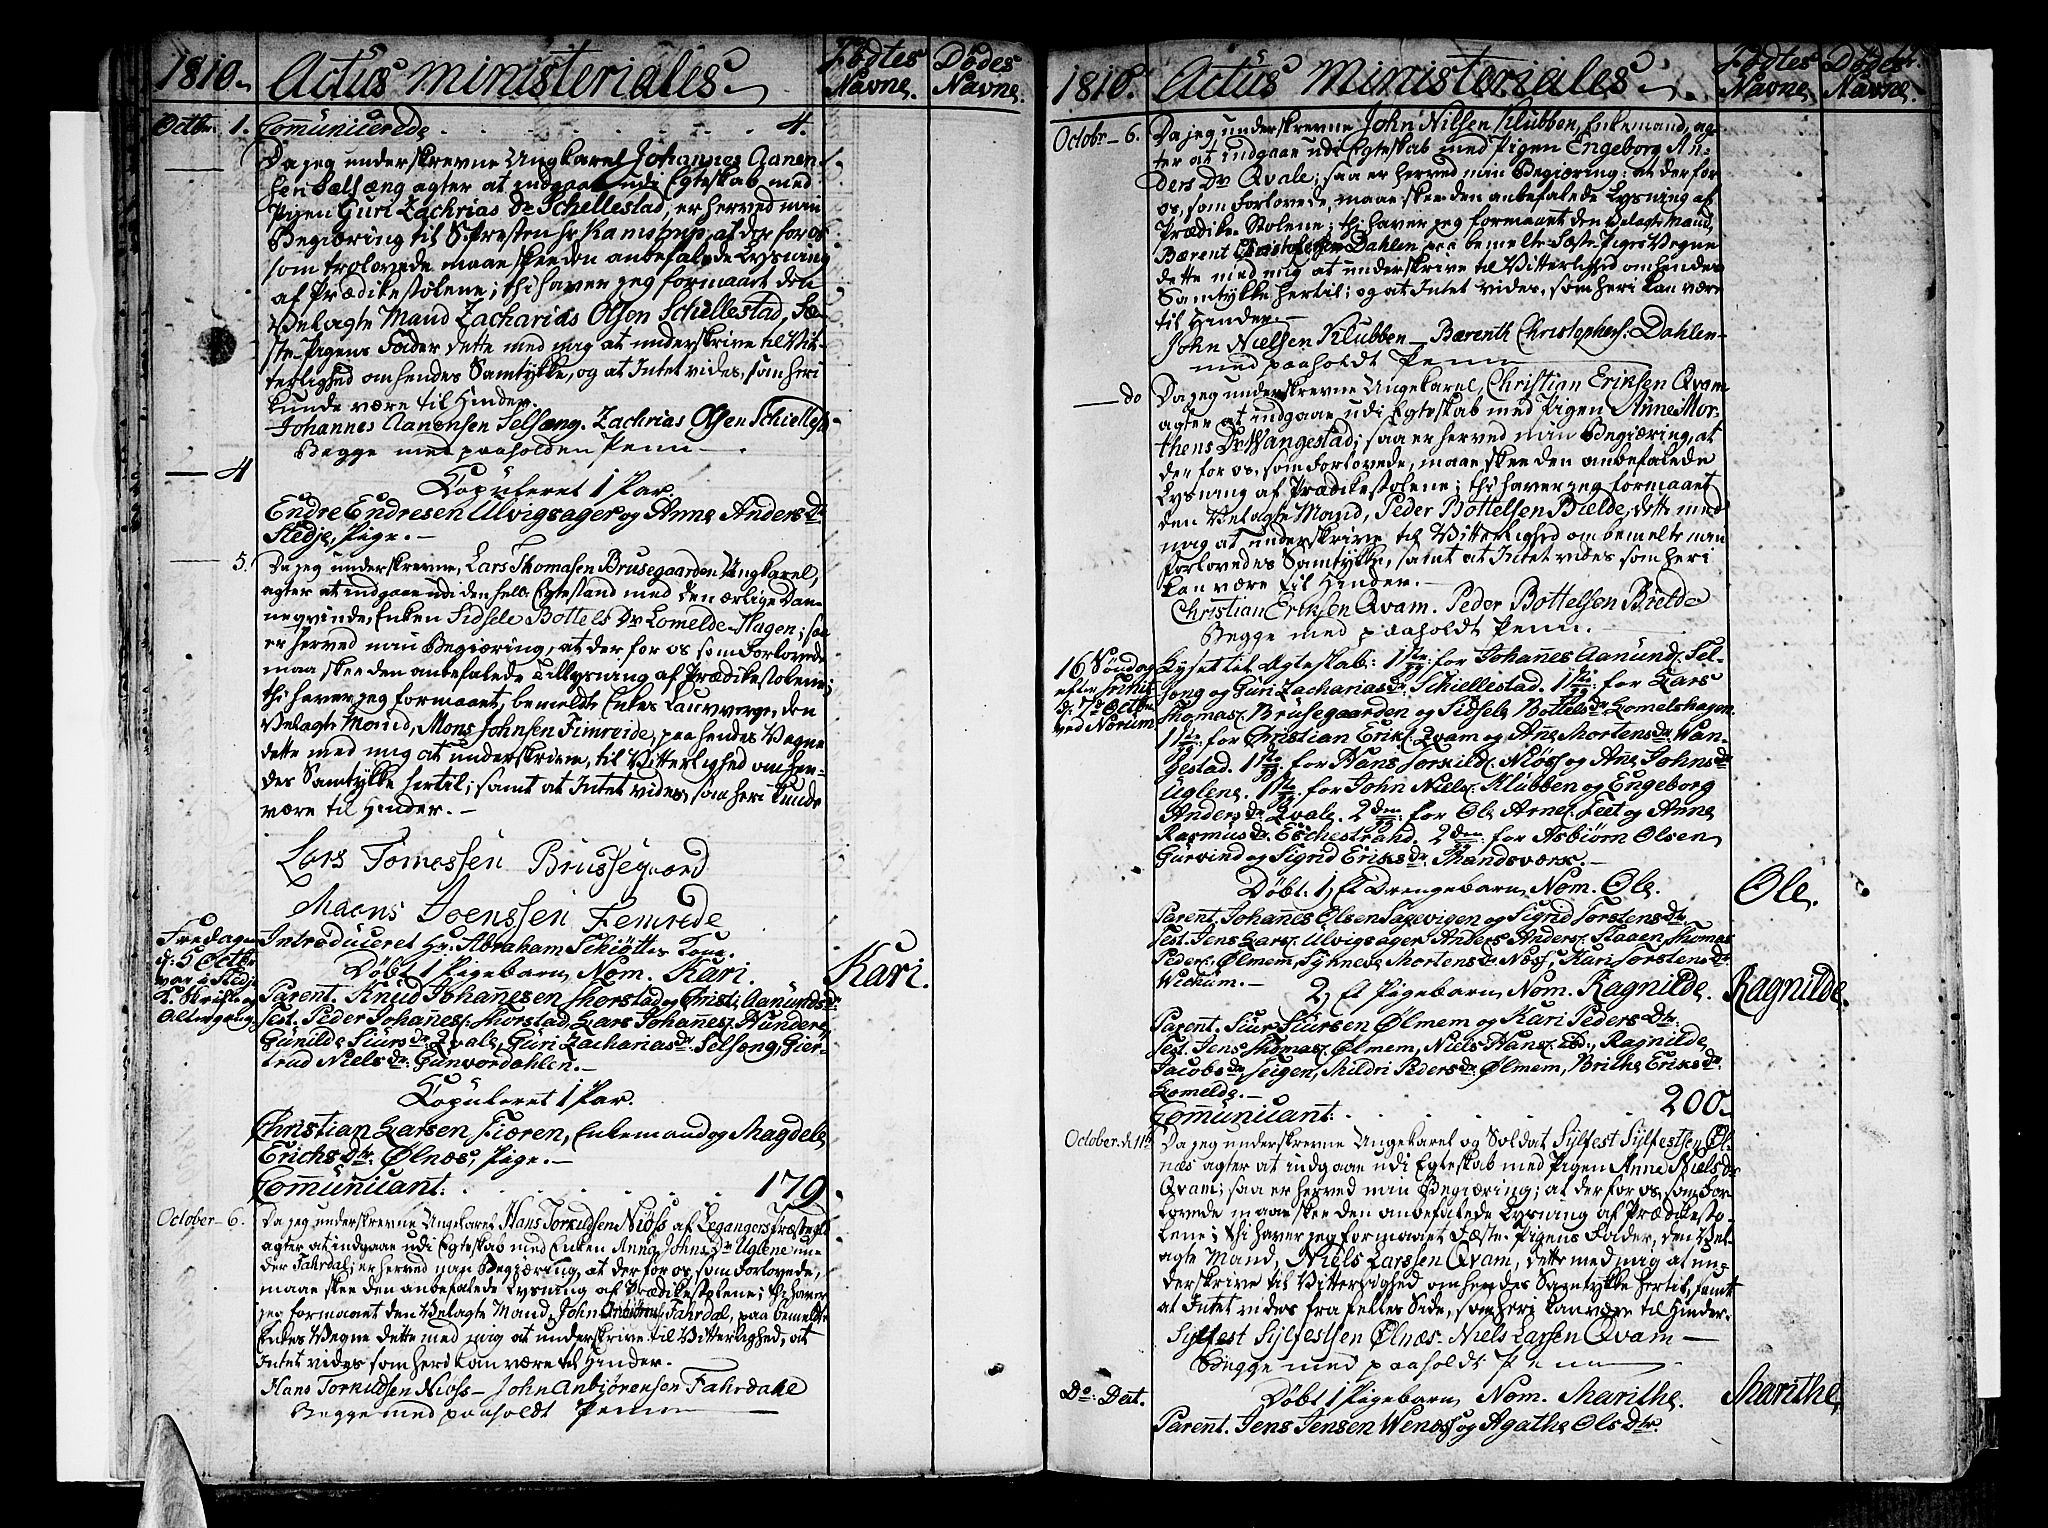 1810. Actus ministeriales. Fødtes Navne. Dødes Navne.
Octbr. 1. Communicerede 4.
Da jeg underskrevne Ungkarel Johannes Aanen-
sen Selseng agter at indgaae udi Egteskab med
Pigen Guri Zachrias Dr Schellestad, er herved min
Begiæring til S. Presten hr Kamstrup, at der for os
som trolovede maae skee den anbefalede Lysning
af Prædikestolene; thi haver jeg formaaet den
Velagte Mand Zacharias Olsen Schellestad, Fæ-
ste-Pigens Fader dette med mig at underskrive til Vit-
terlighed om hendes Samtykke, og at Intet vides, som heri
kunde være til Hinder.
Johannes Aanensen Selseng. Zachrias Olsen Schiellestad
Begge med paaholden Penn
4
Copuleret 1 Par.
Endre Endresen Ulvigsager og Anne Anders Dr
Stedje, Pige.
5. Da jeg underskrevne, Lars Thomasen Brusegaarden Ungkarel,
agter at indgaae udi den hell: Egtestand med den ærlige Dan-
neqvinde, Enken Sidsele Bottels Dr Lomelde-Hagen; saa
er herved min Begiæring, at der for os som Forlovede
maa skee den anbefalede Tillysning af Prædikestolene;
thi haver jeg formaaet, bemeldte Enkes Laugverge, den
Velagte Mand, Mons Johnsen Fimreide, paa hendes Vegne
dette med mig at underskrive, til Vitterlighed om hen-
des Samtykke hertil; samt at Intet vides, som heri kunde
være til Hinder.
Lars Tomessen Brussegaard
Maens Joenssen Femrede
Fredagen d: 5 Octbr var i Stedje K. Skrifte og Altergang
Introduceret Hr. Abraham Schiøttes Kone.
Døbt 1 Pigebarn, Nom. Kari. Kari.
Parent. Knud Johannesen Thorstad og Christi Aanunds dr
Test. Peder Johannes. Thorstad, Lars Johannes. Hundere,
Gunilde Siurs dr Qvale, Guri Zacharias dr Selseng, Gier-
trud Niels dr: Gunvordahlen.
Copuleret 1 Par.
Christian Larsen Fiæren, Enkemand og Magdele
Erichs Dtr. Ølnæs, Pige.
Communicant: 179.
October 6. Da jeg underskrevne Ungekarel Hans Torkildsen Niøss af Leganger Præstegl
agter at indgaae udi Egteskab med Enken Anna Johns Dr Uglene un-
der Fahrdal; er herved min Begiæring, at der for os, som Forlovede,
maae skee den anbefalede Lysning af Prædikestolene; thi haver
jeg formaaet den Velagte Mand, John Anbiørns. Fahrdal, paa bemeldte
Enkes Vegne dette med mig at underskrive til Vitterlighed, at
Intet vides som heri kan være til Hinder.
Hans Torkildsen Niøss John Anbiørensen Fahrdale
Begge med paaholdt Penn
1810. Actus ministeriales. Fødtes Navne. Dødes Navne.
October 6. Da jeg underskrevne John Nilsen Klubben, Enkemand, ag-
ter at indgaae udi Egteskab med Pigen Engeborg An-
ders Dr Qvale; saa er herved min Begiæring: at der for
os, som Forlovede, maae skee den anbefalede Lysning af
Prædike-Stolene; thi haver jeg formaaet den Velagte Mand,
Bærent Christophersen Dahlen paa bemelte Fæste-Piges Vegne
dette med mig at underskrive til Vitterlighed om hendes
Samtykke hertil; og at Intet vides, som heri kan være
til Hinder.
John Nielsen Klubben Bærenth Christophers: Dahlen
med paaholdt Penn
do Da jeg underskrevne Ungekarel, Christian Eriksen Qvam
agter at indgaae udi Egteskab med Pigen Anne Mor-
thens Dr Wangestad; saa er herved min Begiæring, at
der for os, som Forlovede, maae skee den anbefalede
Lysning af Prædikestolene; thi haver jeg formaaet
den Velagte Mand, Peder Bottelsen Bielde, dette med
mig at underskrive til Vitterlighed om bemelte min
Forlovedes Samtykke, samt at Intet vides som heri
kan være til Hinder.
Christian Eriksen Qvam. Peder Bottelsen Bielde
Begge med paaholdt Penn.
16 Søndag efter Trinit. d: 7de Octbr ved Norum
Lyset til Egteskab: 1ste g: for Johannes Aanund. Sel-
seng og Guri Zacharias dr. Schiellestad. 1ste g: for Lars
Thomas. Brusegaarden og Sidsele Bottels dr Lomelshagen.
1ste g: for Christian Eriks. Qvam og Ane Mortens dr Wan-
gestad. 1ste g: for Hans Torkild. Niøss og Ane Johns dr
Uglene. 1ste g: for John Niels. Klubben og Engeborg
Anders dr Qvale. 2den g: for Ole Arnes. Feet og Anne
Rasmus dr. Eschestrand. 2den g: for Asbiørn Olsen
Gurvind og Sigrid Eriks dr. Thandsværk.
Døbt: 1, Et Drengebarn, Nom. Ole. Ole.
Parent. Johanes Olsen Sagevigen og Sigrid Torstens Dtr.
Test. Jens Lars. Ulvigsager Anders Anders. Staaen Thomas
Peders. Ølmem, Synneve Mortens dr Nøss, Kari Torstens dr
Wickum.
2, Et Pigebarn, Nom. Ragnilde. Ragnilde.
Parent. Siur Siursen Ølmem og Kari Peders Dtr.
Test. Jens Thomas. Ølmem, Niels Hans. ibd., Ragnilde
Jacobs dr Teigen, Thildri Peders dr Ølmem, Brithe Eriks dr
Lomelde.
Communicant: 200.
October d. 11te Da jeg underskrevne Ungekarel og Soldat Sylfest Sylfestsen Øl-
næs agter at indgaae udi Egteskab med Pigen Anne Niels dr
Qvam; saa er herved min Begiæring; at der for os, som For-
lovede maae skee den anbefalede Lysning af Prædikesto-
lene; Thi haver jeg formaaet Fæste-Pigens Fader, den Vel-
agte Mand, Niels Larssen Qvam, dette med mig at un-
derskrive til Vitterlighed om hendes Samtykke hertil, samt
at Intet vides fra felles Side, som heri kan være til Hinder.
Sylfest Sylfestsen Ølnæs. Niels Larsen Qvam
Begge med paaholdt Penn
Do. Dat. Døbt 1 Pigebarn, Nom. Marithe. Marithe,
Parent. Jens Jensen Wenæss og Agathe Ols Dtr.